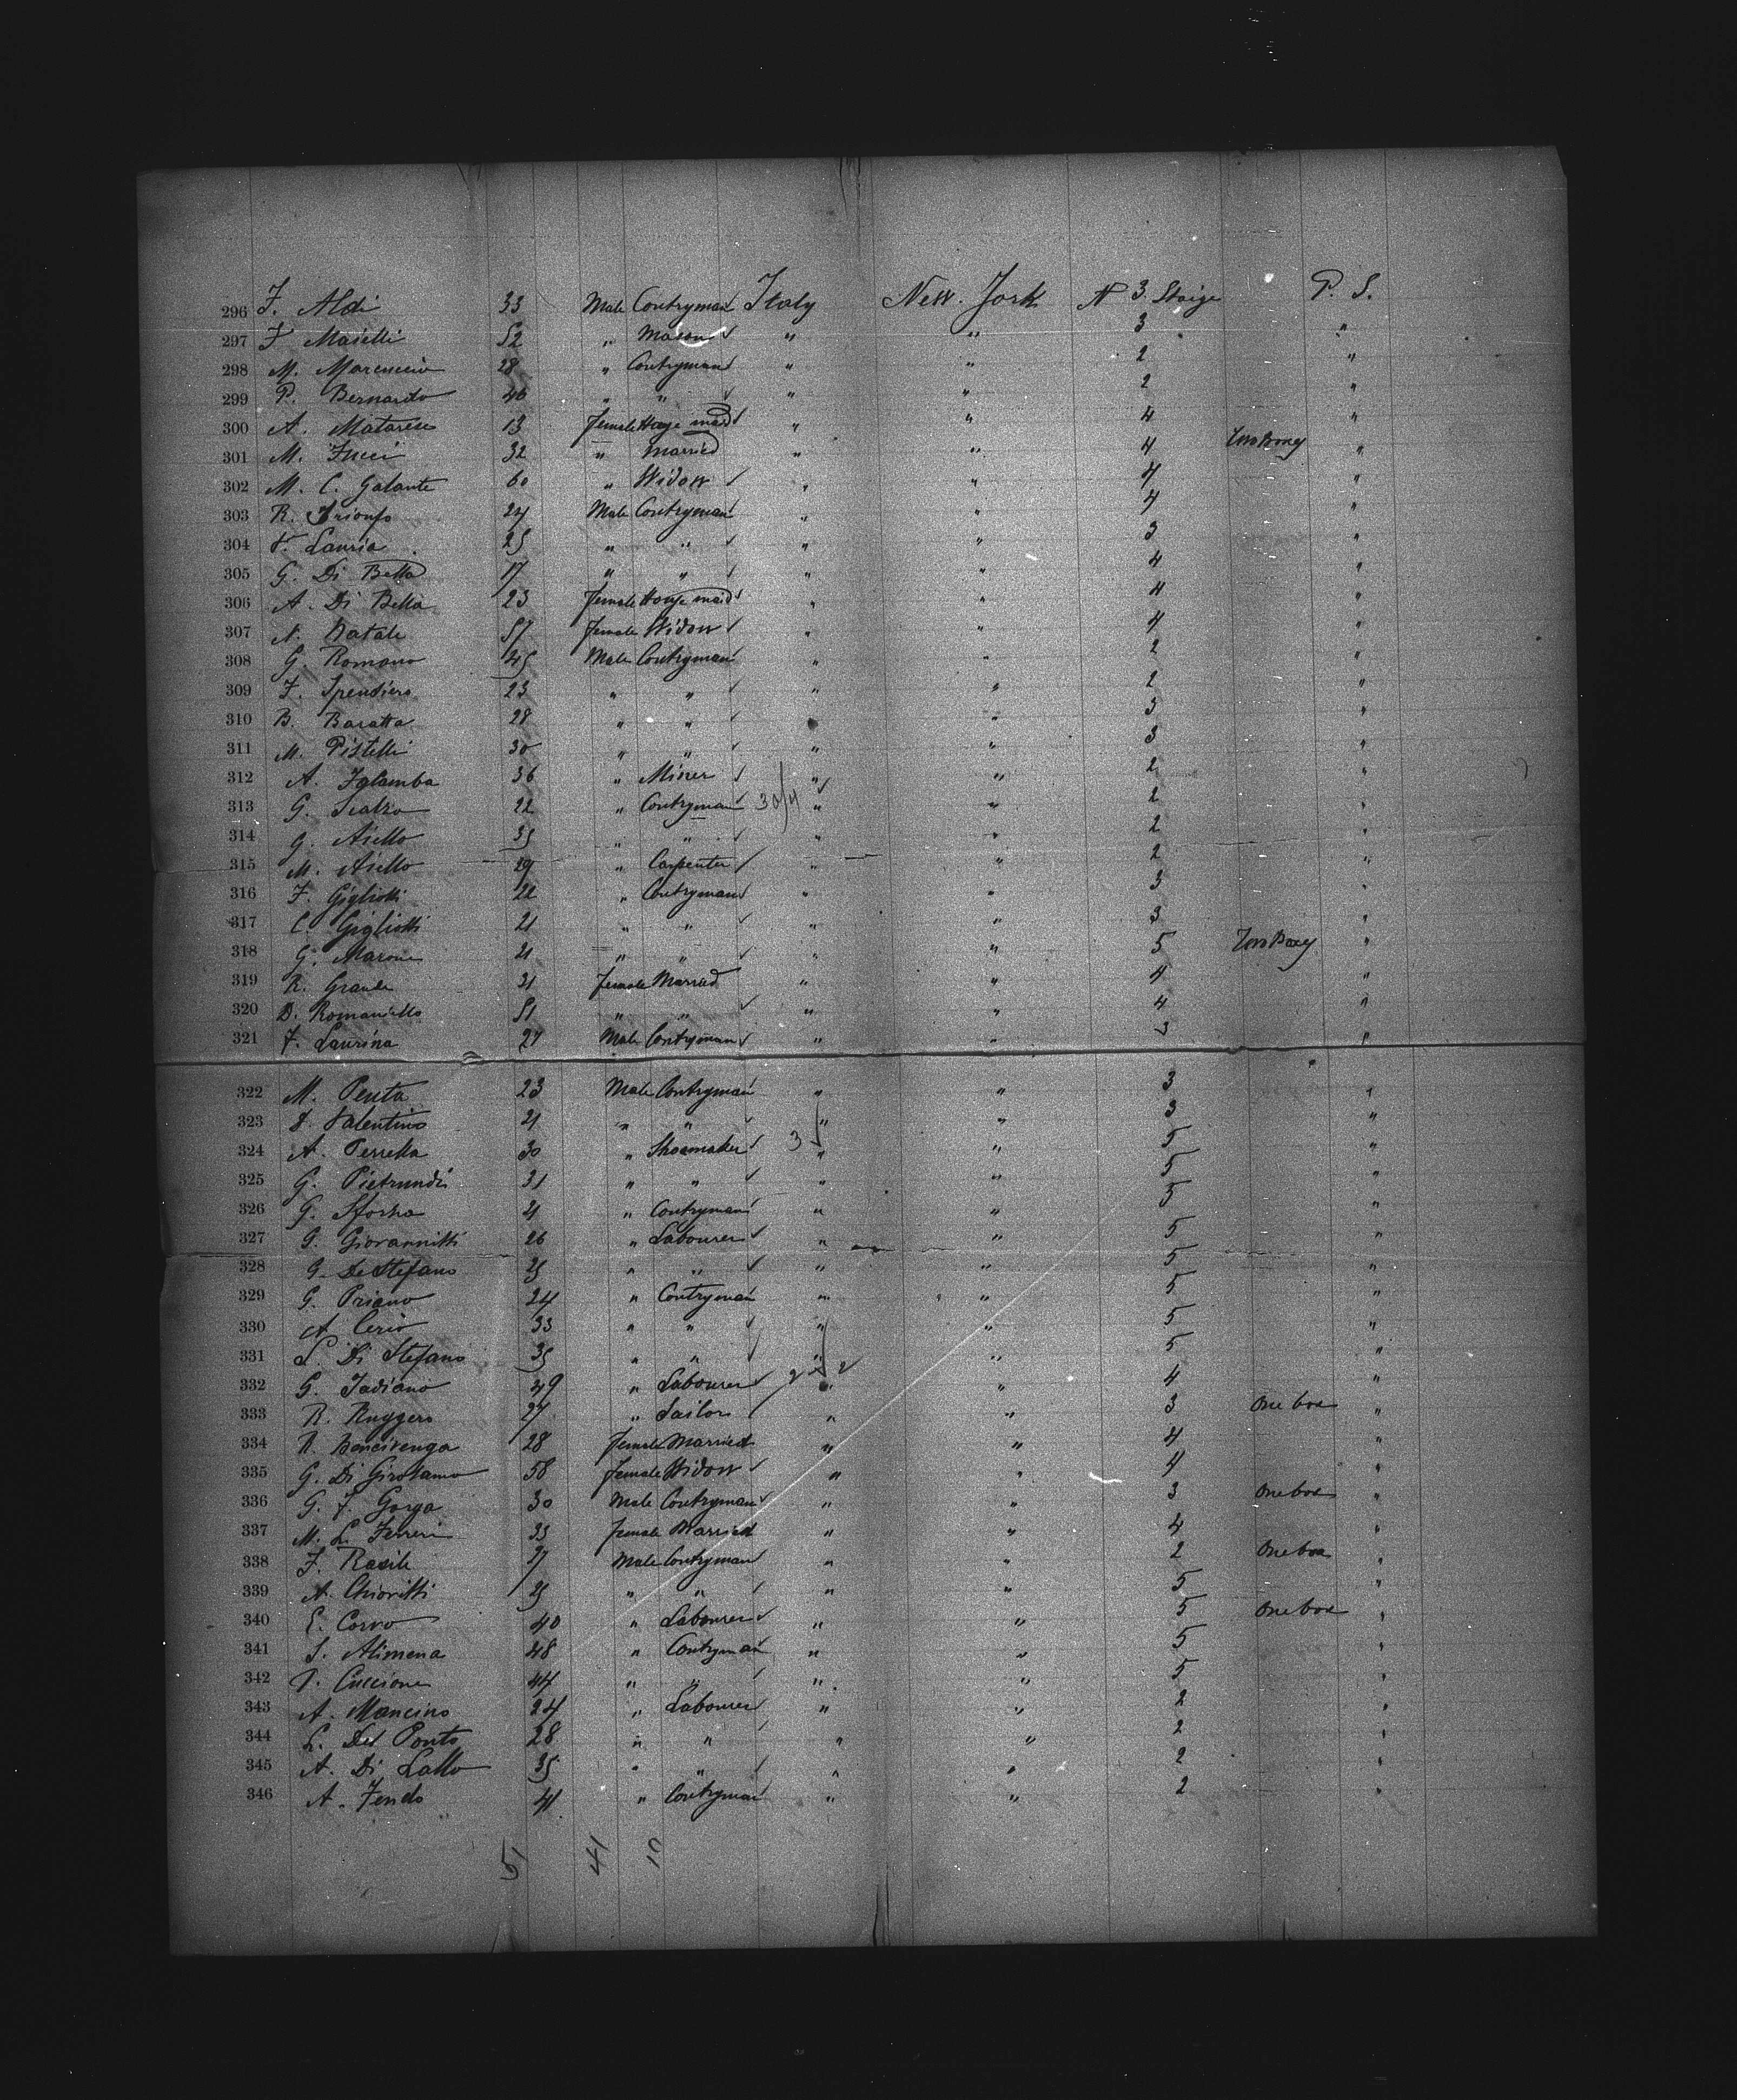 296 F. Aldi 33 Male Contryman Italy New. York N 3. Staige P. S.
297 F Maselli 52 " Mason " " 3 "
298 M. Marcuccio 28 " Contryman " " 2 "
299 P. Bernardo 46 " " " " 2 "
300 A. Matarese 13 female House maid " " 4 "
301 M. Fucci 32 " Married " " 4 "
302 M. C. Galante 60 " Widow " " 4 "
303 R. Trionfo 24 Male Contryman " " 4 "
304 F. Lauria 25 " " " " 3 "
305 G. Di Bella 17 " " " " 4 "
306 A. Di Bella 23 female House maid " " 4 "
307 N. Natale 57 female Widow " " 4 "
308 G. Romano 45 Male Contryman " " 2 "
309 F. Spendiero 23 " " " " 2 "
310 B. Baratta 28 " " " " 3 "
311 M. Pistelli 30 " " " " 3 "
312 A. 36 " Miner " " 2 "
313 G. Scalzo 22 " Contryman 30/4 " " 2 "
314 G. Aiello 35 " " " " 2 "
315 M. Aiello 29 " Carpenter " " 2 "
316 F. Gigliotti 22 " Contryman " " 3 "
317 C. Gigliotti 21 " " " " 3 "
318 G. Marone 21 " " " " 5 "
319 R. Grande 31 female Married " " 4 "
320 D. Romaniello 51 " " " " 4 "
321 F. Laurina 27 Male Contryman " " 3 "
322 M. Penta 23 Male Contryman " " 3 "
323 D. Valentino 21 " " " " 3 "
324 A. Perrella 30 " Shoemaker 3 " " 5 "
325 G. Pietrundi 31 " " " " 5 "
326 G. Sforza 21 " Contryman " " 5 "
327 G. Giovannitti 26 " Labourer " " 5 "
328 G. De Stefano 25 " " " " 5 "
329 G. Priano 24 " Contryman " " 5 "
330 A. Cerio 33 " " " " 5 "
331 L. Di Stefano 35 " " " " 5 "
332 G. Tadiano 49 " Labourer 2 " 2 " 4 "
333 R. Ruggero 27 " Sailor " " 3 One box "
334 R. Bencivenga 28 female Married " " 4 "
335 G. Di Girolamo 58 female Widow " " 4 "
336 G. F. Gorga 30 Male Contryman " " 3 One box "
337 M. L. Ferreri 33 female Married " " 4 "
338 F. Rasile 37 Male Contryman " " 2 One box "
339 A. Chiovitti 25 " " " " 5 "
340 E. Corvo 40 " Labourer " " 5 One box "
341 S. Alimena 48 " Contryman " " 5 "
342 P. Cuccione 44 " " " " 5 "
343 A. Mancino 24 " Labourer " " 2 "
344 L. Del Ponto 28 " " " " 2 "
345 A. Di Lallo 35 " " " " 2 "
346 A. 41 " Contryman " " 2 "
51 41 10